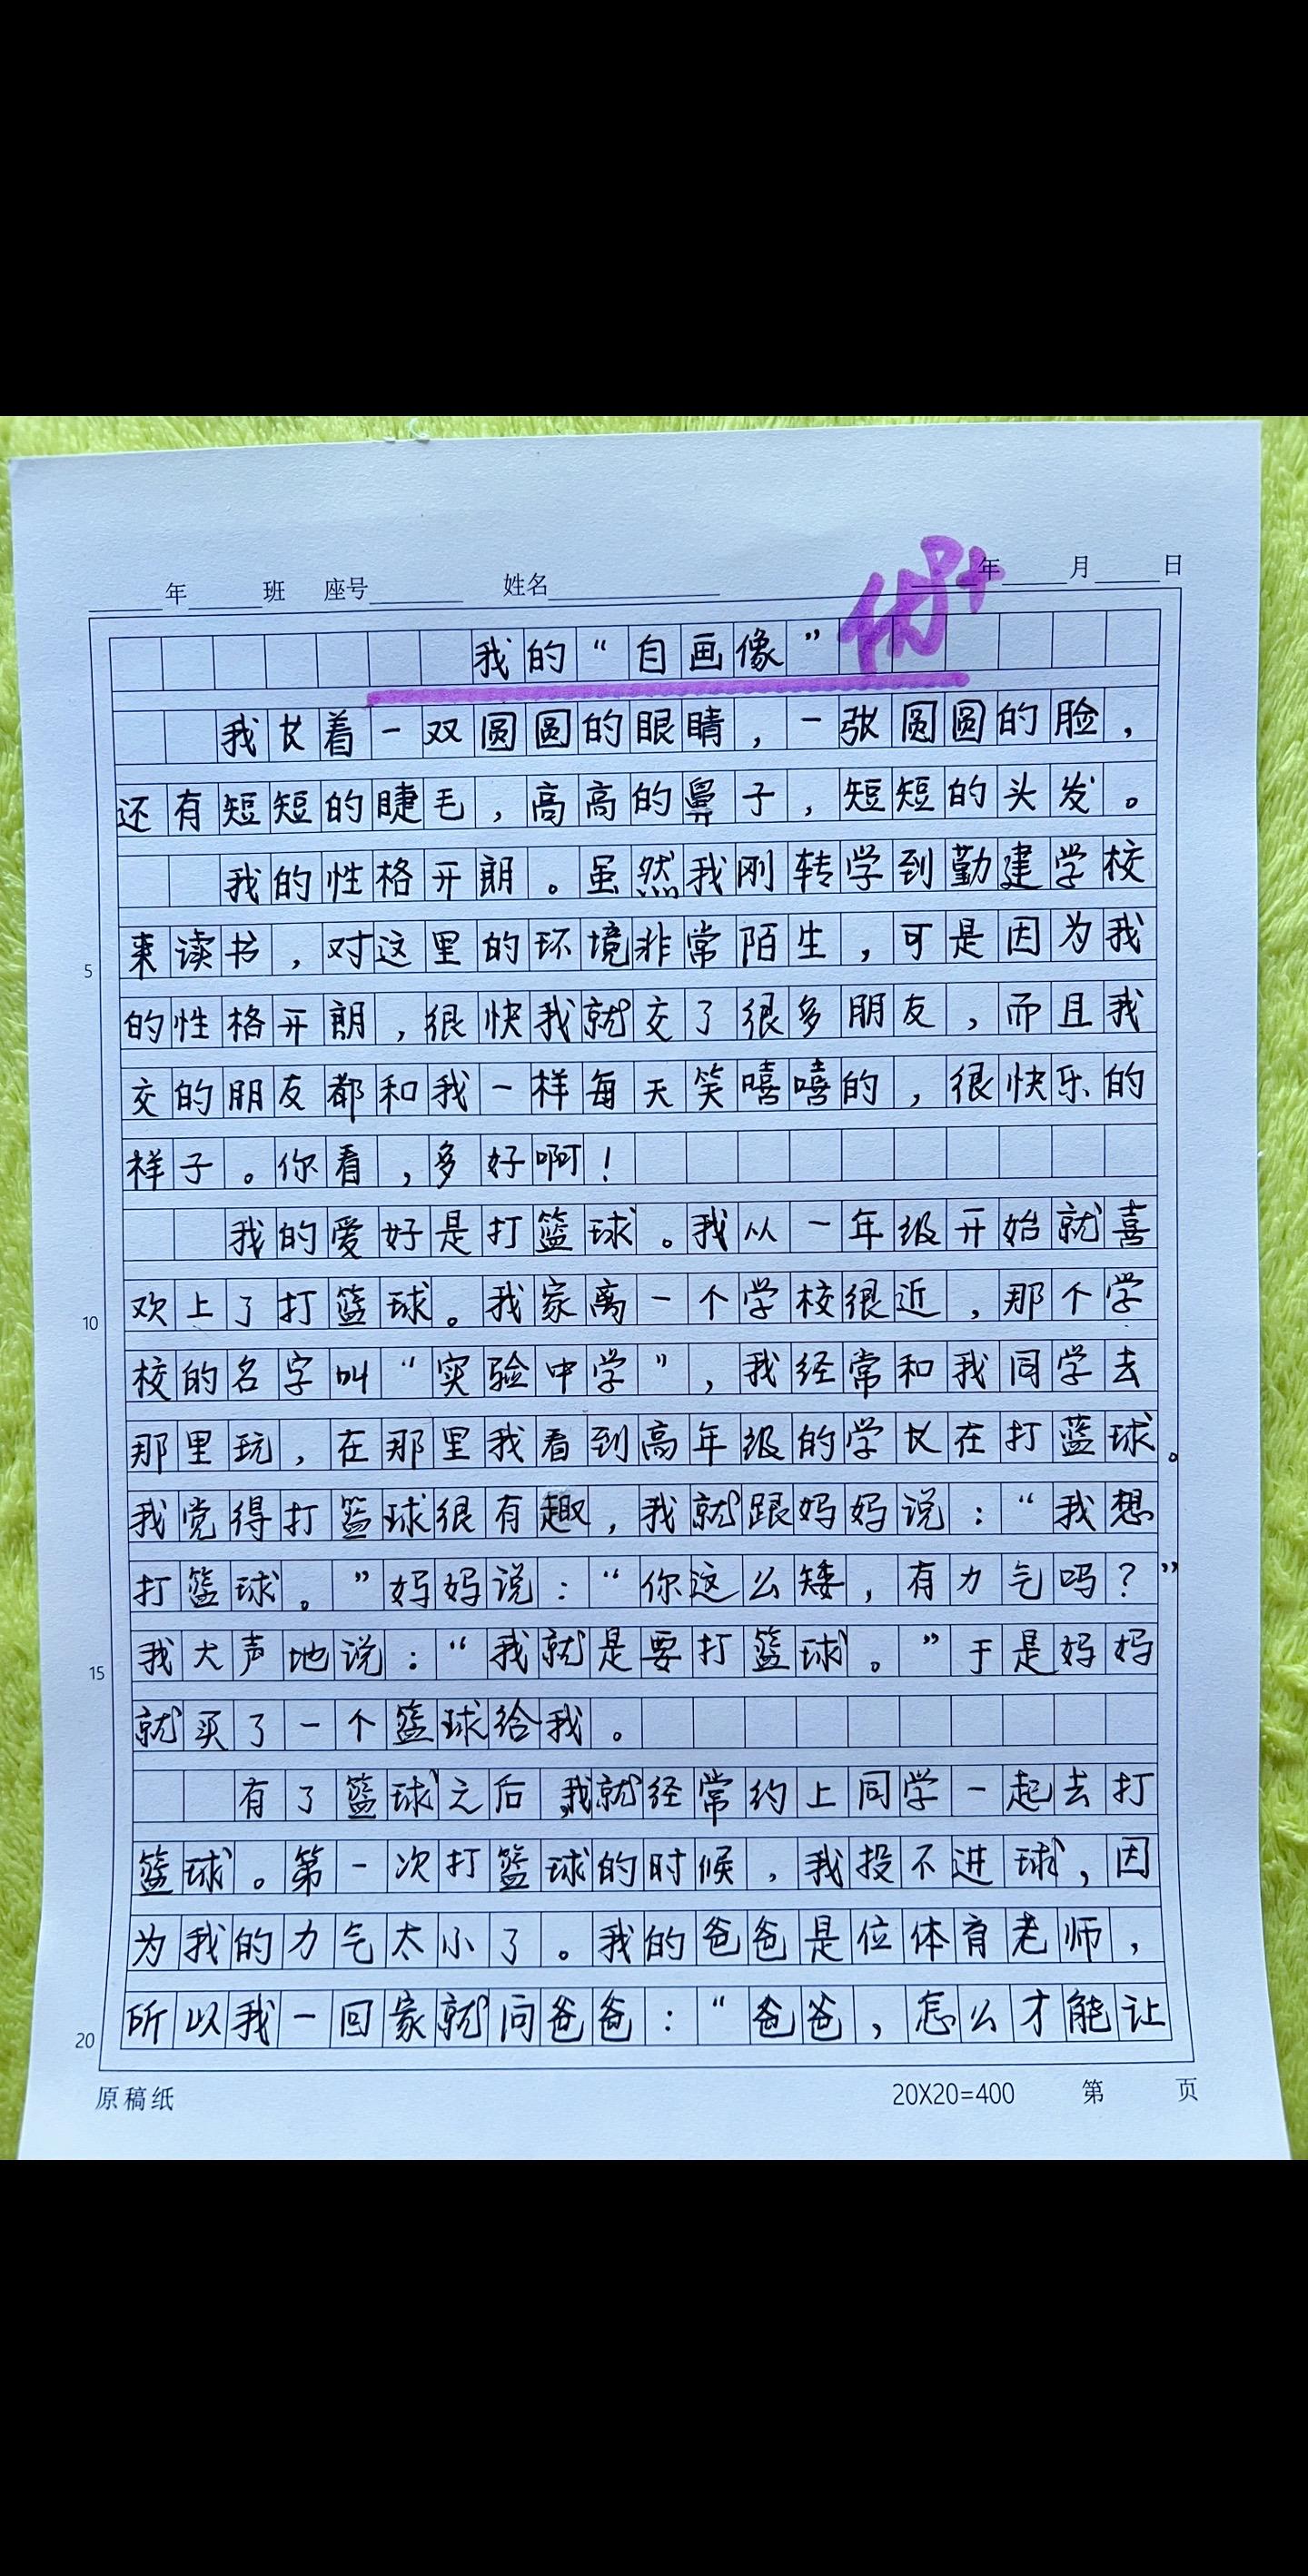 年 班 座号 姓名 年 月 日
优+
我的“自画像”
我长着一双圆圆的眼睛，一张圆圆的脸，
还有短短的睫毛，高高的鼻子，短短的头发。
我的性格开朗。虽然我刚转学到勤建学校
5 来读书，对这里的环境非常陌生，可是因为我
的性格开朗，很快我就交了很多朋友，而且我
交的朋友都和我一样每天笑嘻嘻的，很快乐的
样子。你看，多好啊！
我的爱好是打篮球。我从一年级开始就喜
10 欢上了打篮球。我家离一个学校很近，那个学
校的名字叫“实验中学”，我经常和我同学去
那里玩，在那里我看到高年级的学长在打蓝球。
我觉得打篮球很有趣，我就跟妈妈说：“我想
打篮球。”妈妈说：“你这么矮，有力气吗？”
15 我大声地说：“我就是要打篮球。”于是妈妈
就买了一个篮球给我。
有了篮球之后，我就经常约上同学一起去打
篮球。第一次打篮球的时候，我投不进球，因
为我的力气太小了。我的爸爸是位体育老师，
20 所以我一回家就问爸爸：“爸爸，怎么才能让
原稿纸 20X20=400 第 页